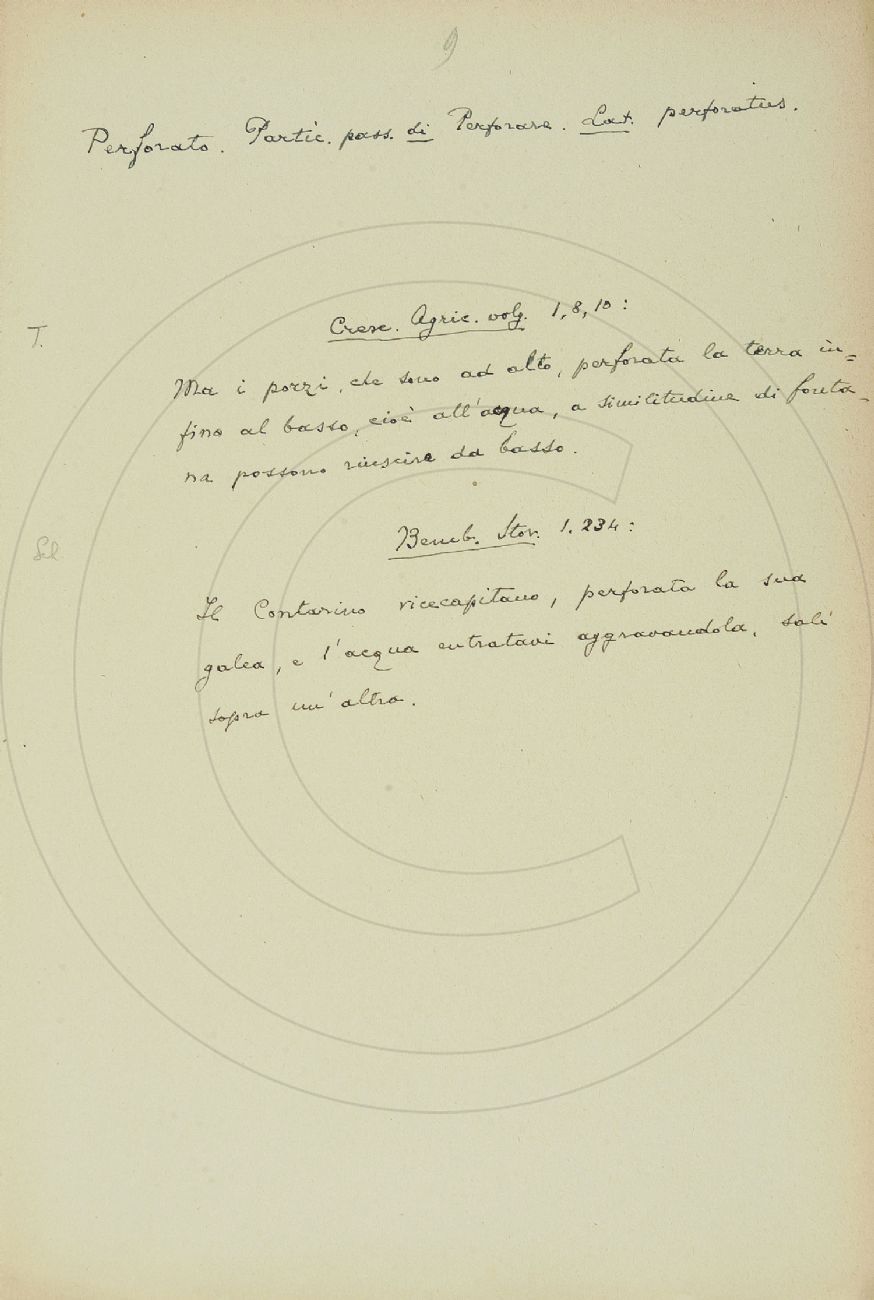 9
Perforato. Partic. pass. di Perforare. Lat. perforatus.
T.
Cresc. Agric. volg. 1, 8, 10:
Ma i pozzi, che sono ad alto, perforata la terra in=
fino al basso, cioè all'acqua, a similitudine di fonta-
na possono riuscire da basso.
Bemb. Stor. 1. 234:
Il Contarino vicecapitano, perforata la sua
galea, e l'acqua entratavi aggravandola, salì
sopra un'altra.